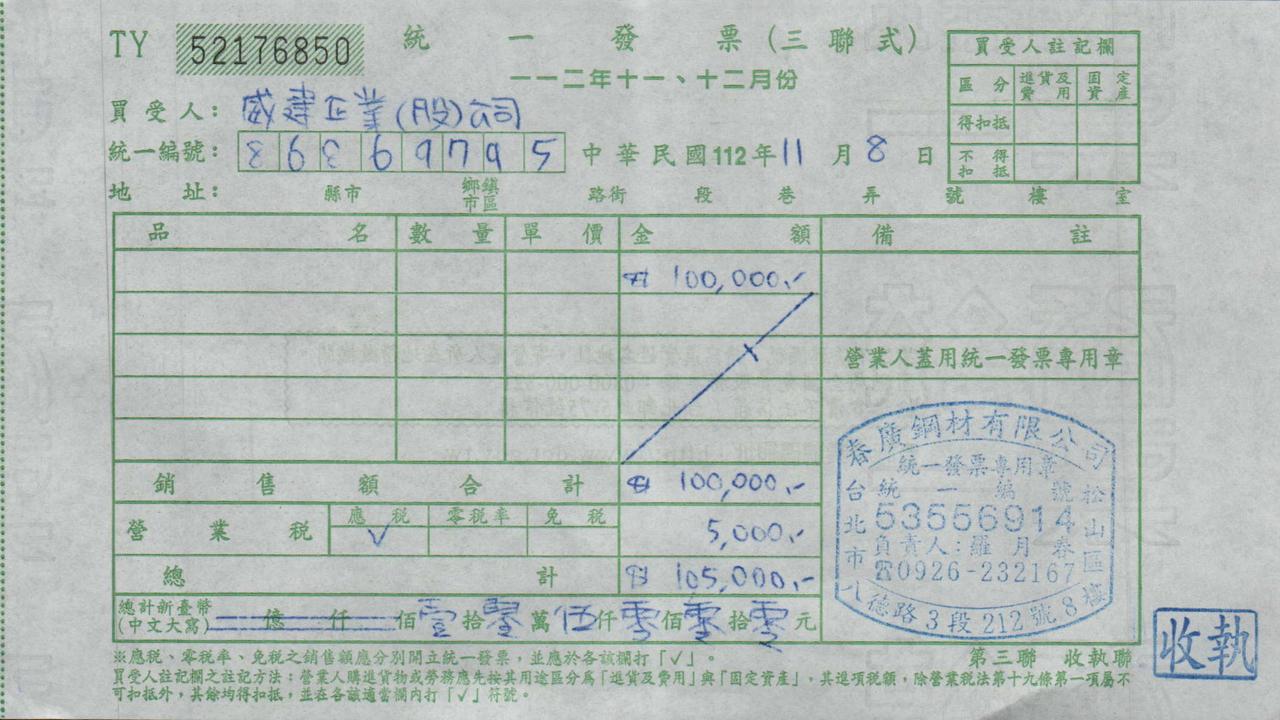 TY 52176850 統一發票(三聯式)
一一二年十一、十二月份
買受人註記欄
區分 進貨及費用 固定資產
得扣抵
不得扣抵
買受人: 威建企業(股)公司
統一編號: 86369795 中華民國112年11月8日
地址: 縣市 鄉鎮市區 路街 段 巷 弄 號 樓 室
品名 數量 單價 金額 備註
100,000.-
營業人蓋用統一發票專用章
銷售額合計 100,000.-
營業稅 應稅 零稅率 免稅
√ 5,000.-
總計 105,000.-
總計新臺幣(中文大寫) 億仟佰壹拾零萬伍仟零佰零拾零元
春廣鋼材有限公司
統一發票專用章
統一編號
53556914
負責人:羅月春
☎0926-232167
台北市松山區
八德路3段212號8樓
※應稅、零稅率、免稅之銷售額應分別開立統一發票,並應於各該欄打「√」。
第三聯 收執聯
買受人註記欄之註記方法:營業人購進貨物或勞務應先按其用途區分為「進貨及費用」與「固定資產」,其進項稅額,除營業稅法第十九條第一項屬不
可扣抵外,其餘均得扣抵,並在各該適當欄內打「√」符號。
收執